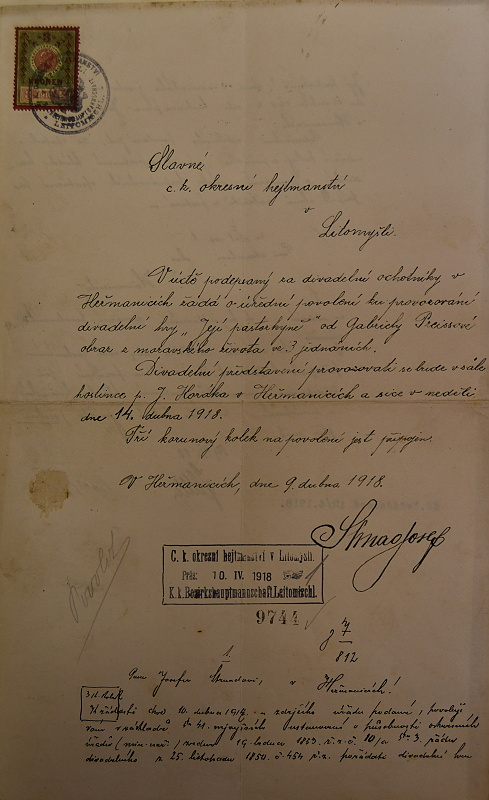 LEITOMISCHL
Slavné
c. k. okresní hejtmanství
v
Litomyšli.
V úctě podepsaný za divadelní ochotníky v
Heřmanicích žádá o úřední povolení ku provozování
divadelní hry „Její pastorkyně" od Gabriely Preissové
obraz z moravského života ve 3 jednáních.
Divadelní představení provozovati se bude v sále
hostince p. J. Horáka v Heřmanicích a sice v neděli
dne 14. dubna 1918.
Tří korunový kolek na povolení jest připojen.
V Heřmanicích, dne 9. dubna 1918.
Strnad Josef
C. k. okresní hejtmanství v Litomyšli.
Präs: 10. IV. 1918
K. k. Bezirkshauptmannschaft Leitomischl.
9744
7
812
1.
Panu Josefu Strnadovi, v Heřmanicích!
3 K kolek
K žádosti dne 10. dubna 1918 u zdejšího úřadu podané, povoluji
Vám v základě
úřadů 19. ledna 1853 ř. z. č. 10 a § 3. řádu
divadelního z 25. listopadu 1850 č. 454 ř. z. pořádati divadelní hru